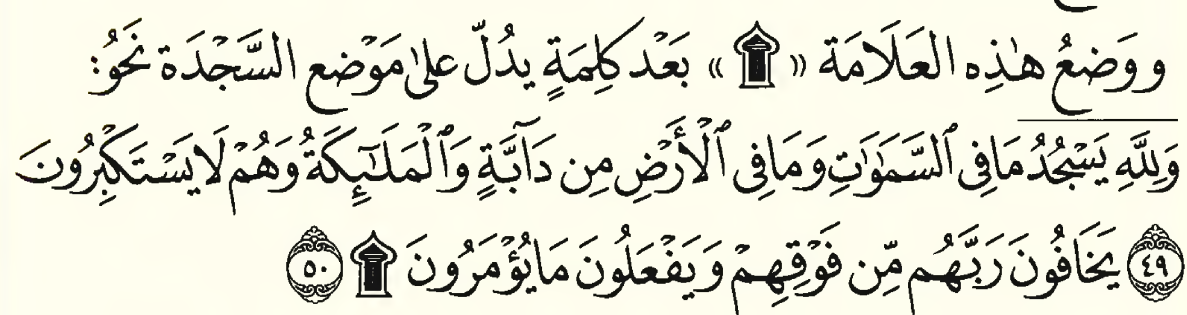 ووَضعُ هٰذِه العَلَامَة «۩» بَعْد كلِمَةٍ يدُلّ على مَوْضع السَّجْدَة نَحْوُ:
وَلِلَّهِ يَسْجُدُ مَا فِى ٱلسَّمَـٰوَٰتِ وَمَا فِى ٱلْأَرْضِ مِن دَآبَّةٍ وَٱلْمَلَـٰٓئِكَةُ وَهُمْ لَا يَسْتَكْبِرُونَ
﴿٤٩﴾ يَخَافُونَ رَبَّهُم مِّن فَوْقِهِمْ وَيَفْعَلُونَ مَا يُؤْمَرُونَ ۩ ﴿٥٠﴾